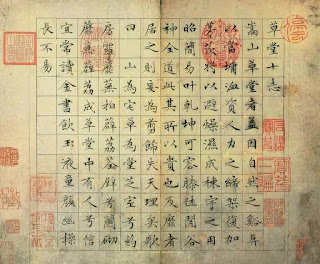 草堂十志
嵩山草堂者蓋因自然之谿阜
以當墉洫資人力之締架復加
茅茨將以避燥濕成棟宇之用
昭簡易叶乾坤可容膝休閒谷
神全道此其所以貴也及靡者
居之則妄為剪飾失天理矣歌
曰山為宅兮草為堂芝室兮藥
房羅蘼蕪拍薜荔荃壁兮蘭砌
蘼蕪薜荔成草堂中有人兮信
宜常讀金書飲玉液童顏幽操
長不易